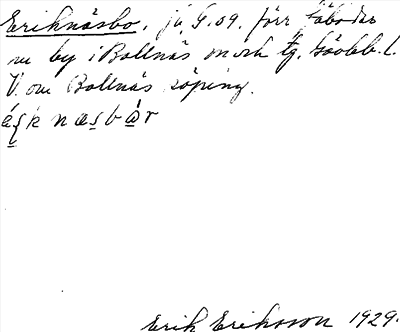 Eriknäsbo, jä, G. 09. förr fäbodar
nu by i Bollnäs sn och tg. Gävleb. l.
V. om Bollnäs köping.
é̱ṟk næs̱bår
Erik Eriksson 1929.